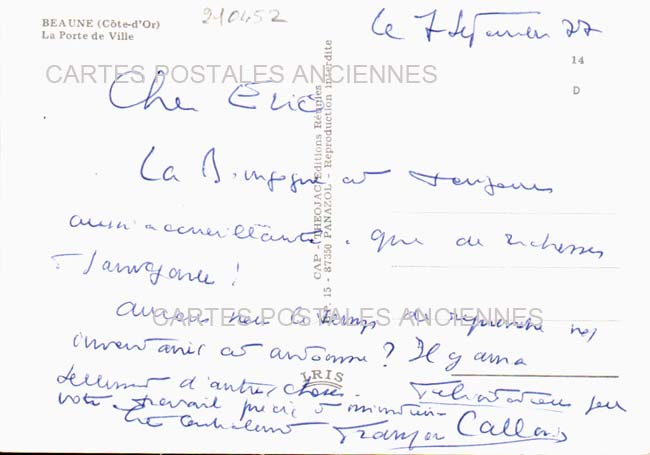 BEAUNE (Côte-d'Or)
La Porte de Ville
210452
Le 7 septembre 77
14
D
CARTES POSTALES ANCIENNES
Cher Éric
La Bourgogne est toujours
aussi accueillante. que de richesses
à sauvegarder!
aurons nous le temps de reprendre nos
inventaires cet automne? Il y aura
tellement d'autres choses. Félicitations pour
votre travail précis et minutieux
Très cordialement François
CARTES POSTALES ANCIENNES
CAP - THEOJAC Editions Réunies
15 - 87350 PANAZOL - Reproduction interdite
IRIS